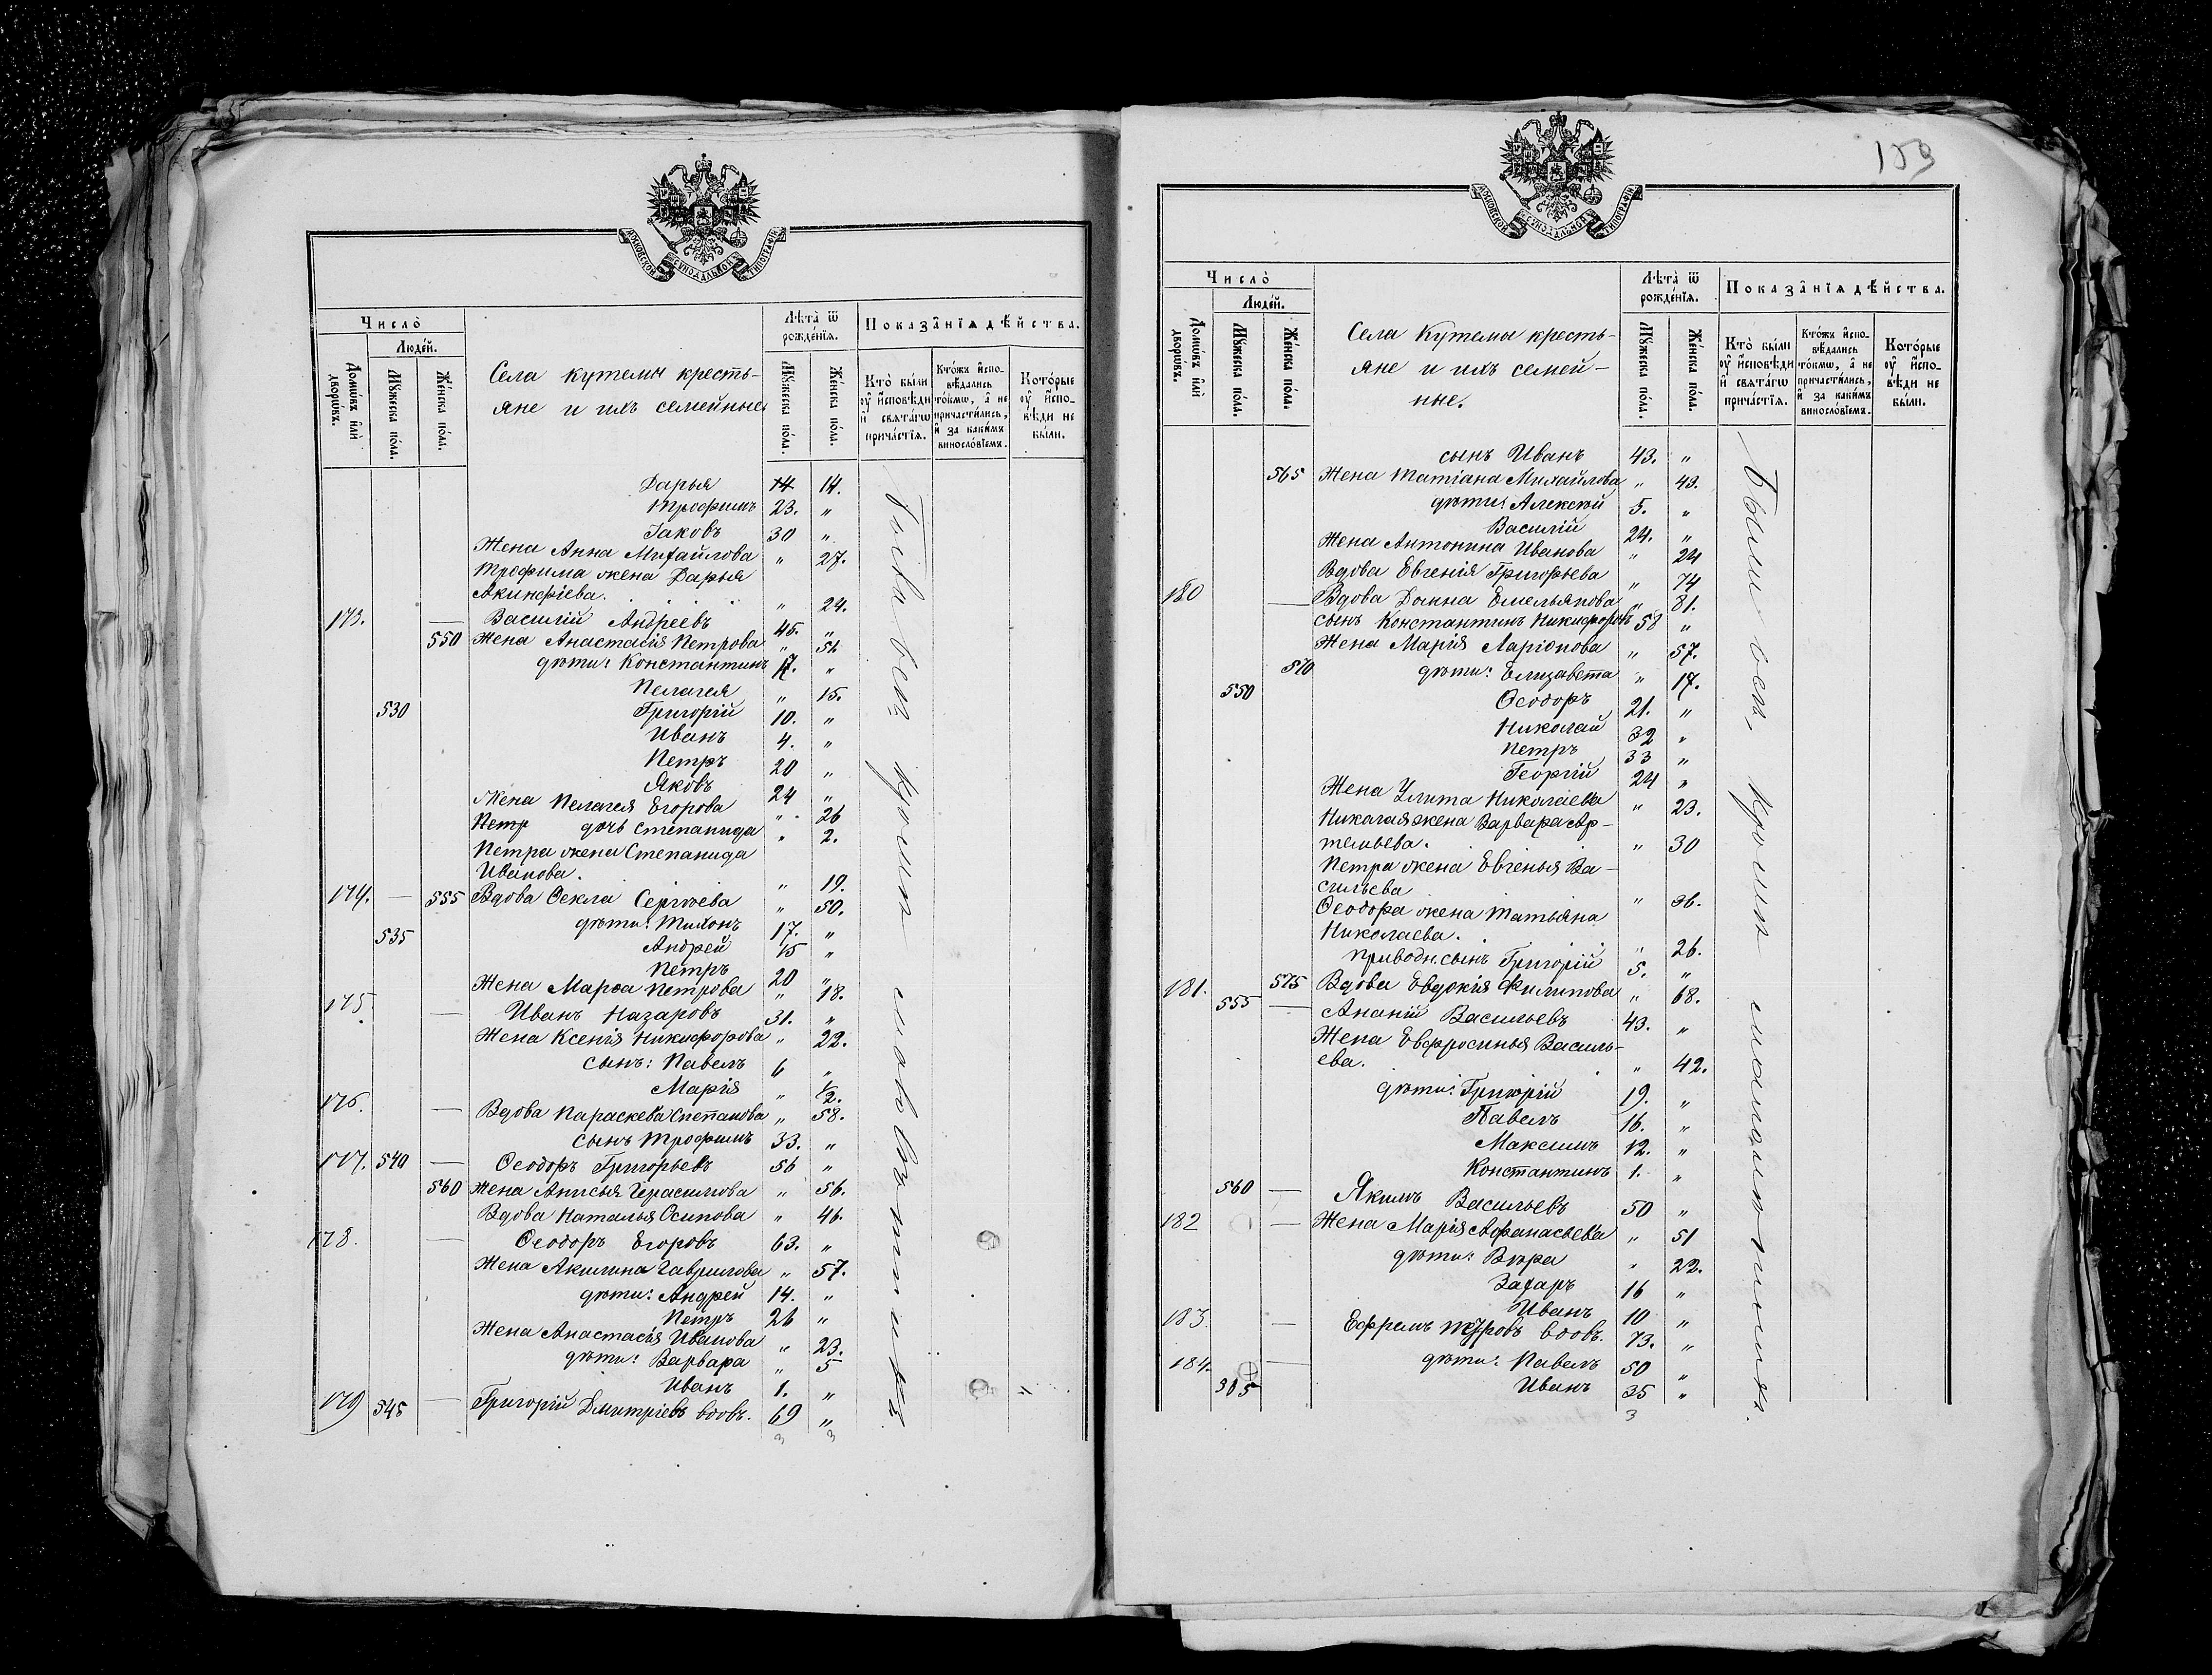 МОСКОВСКОЙ СѴНОДАЛЬНОЙ ТИПОГРАФІИ
Число̀
Люде́й.
Домѡ́въ и҆лѝ дворѡ́въ.
Мꙋ́жеска по́ла.
Же́нска по́ла.
Села Кутемы кресть-
яне и ихъ семейные
Лѣта̀ ѿ рожде́нїѧ.
Мꙋ́жеска по́ла.
Же́нска по́ла.
Показа̑нїѧ дѣ́йства.
Кто̀ бы́ли оу҆ и҆сповѣ́ди и҆ свѧта́гѡ прича́стїѧ.
Кто́жъ и҆спо-вѣ́дались то́кмѡ, а҆ не причасти́лись, и҆ за каки́мъ винослові́емъ.
Кото́рые оу҆ и҆спо-вѣ́ди не бы́ли.
Дарья 14 14.
Трофимъ 23. "
Іаковъ 30 "
Жена Анна Михайлова " 27.
Трофима жена Дарья
Акинфіева. " 24.
173. — Василій Андреевъ 45. "
550 Жена Анастасія Петрова "
дѣти: Константинъ 17. "
Пелагея " 15.
530 Григорій 10. "
Иванъ 4. "
Петръ 20 "
Яковъ 24 "
Жена Пелагея Егорова " 26
Петр дочь Степанида " 2.
Петра жена Степанида
Иванова. " 19.
174. — 555 Вдова Ѳекла Сергѣева " 50.
дѣти: Тихонъ 17. "
535 Андрей 15 "
Петръ 20 "
Жена Марѳа Петрова " 18.
175. — Иванъ Назаровъ 31. "
Жена Ксенія Никифорова " 22.
сынъ: Павелъ 6 "
Марія " 1/2.
176. — Вдова Параскева Степанова " 58.
сынъ Трофимъ 33. "
177. 540 — Ѳеодоръ Григорьевъ 56 "
560 Жена Анисья Герасимова " 56.
Вдова Наталья Осипова " 46.
178. — Ѳеодоръ Егоровъ 63. "
Жена Акилина Гаврилова " 57.
дѣти: Андрей 14. "
Петръ 26 "
Жена Анастасія Иванова " 23.
дѣти: Варвара " 5
Иванъ 1. "
179 545 — Григорій Дмитріевъ вдовъ. 69 "
3 3
159
МОСКОВСКОЙ СѴНОДАЛЬНОЙ ТИПОГРАФІИ
Число̀
Люде́й.
Домѡ́въ и҆лѝ дворѡ́въ.
Мꙋ́жеска по́ла.
Же́нска по́ла.
Села Кутемы кресть-
яне и ихъ семей-
ные.
Лѣта̀ ѿ рожде́нїѧ.
Мꙋ́жеска по́ла.
Же́нска по́ла.
Показа̑нїѧ дѣ́йства.
Кто̀ бы́ли оу҆ и҆сповѣ́ди и҆ свѧта́гѡ прича́стїѧ.
Кто́жъ и҆спо-вѣ́дались то́кмѡ, а҆ не причасти́лись, и҆ за каки́мъ винослові́емъ.
Кото́рые оу҆ и҆спо-вѣ́ди не бы́ли.
Были всѣ, кромѣ малолѣтнихъ.
сынъ Иванъ 43. "
565 Жена Татіана Михайлова " 43.
дѣти: Алексѣй 5. "
Василій 24. "
Жена Антонина Иванова " 24
Вдова Евгенія Григорьева " 74
180 — Вдова Домна Емельянова " 81.
сынъ Константинъ Никифоровъ 58 "
Жена Марія Ларіонова " 57.
570 дѣти: Елизавета " 17.
550 Ѳеодоръ 21. "
Николай 32 "
Петръ 33 "
Георгій 24 "
Жена Улита Николаева " 23.
Николая жена Варвара Ар-
темьева. " 30
Петра жена Евгенья Ва-
сильева " 36.
Ѳеодора жена Татьяна
Николаева. " 26.
приводн. сынъ Григорій 5. "
181. 575 Вдова Евдокія Филипова " 68.
555 — Ананій Васильевъ 43. "
Жена Евфросинья Василь-
ева. " 42.
дѣти: Григорій 19. "
Павелъ 16. "
Максимъ 12. "
Константинъ 1. "
560 — Якимъ Васильевъ 50 "
182 — Жена Марія Афанасьева " 51
дѣти: Вѣра " 22.
Захаръ 16 "
Иванъ 10 "
183. — Ефремъ вдовъ. 73. "
184. — дѣти: Павелъ 50 "
Иванъ 35 "
3